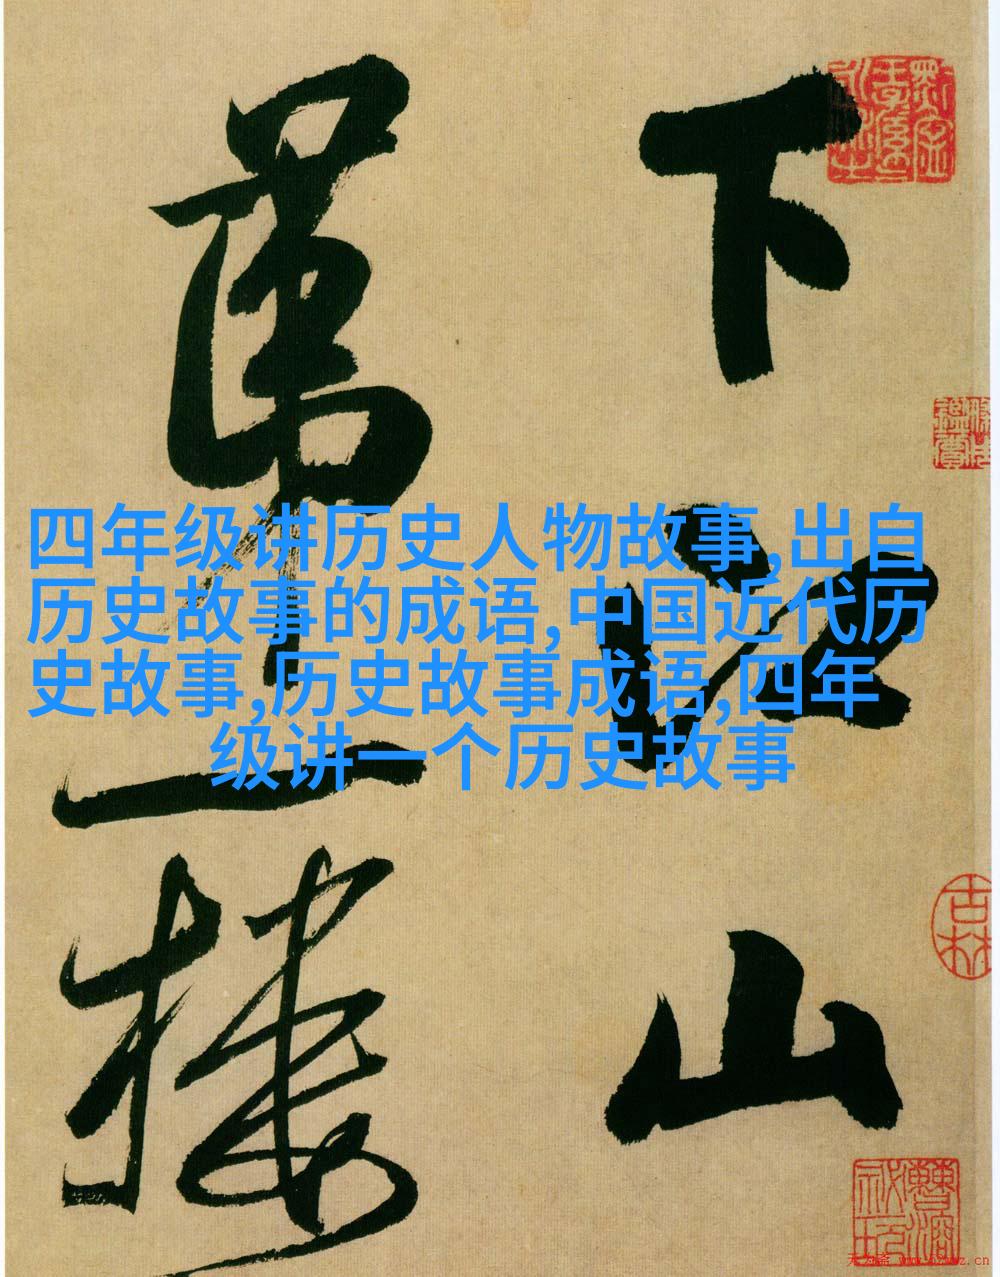 下江山
第一樓
四年级讲历史人物故事,出自
历史故事的成语,中国近代历
史故事,历史故事成语,四年
级讲一个历史故事